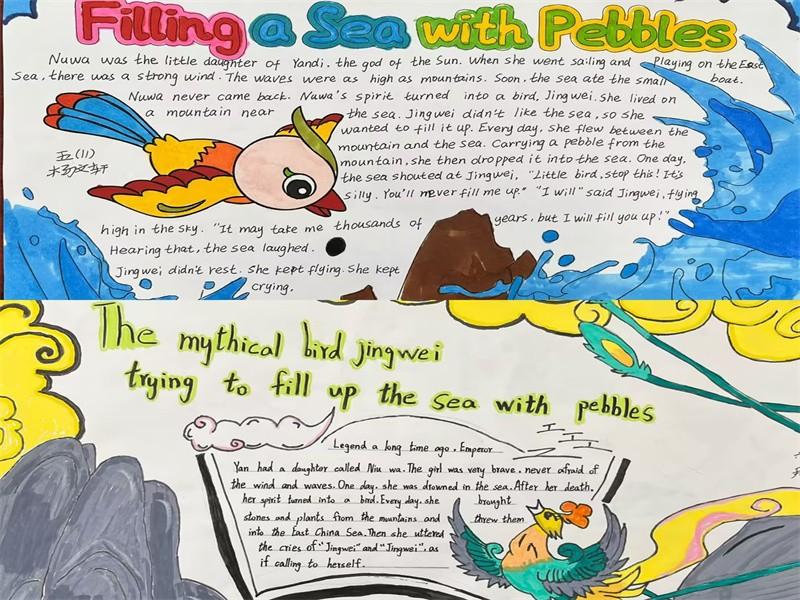 Filling a Sea with Pebbles
Nuwa was the little daughter of Yandi, the god of the Sun. When she went sailing and playing on the East
Sea, there was a strong wind. The waves were as high as mountains. Soon, the sea ate the small boat.
Nuwa never came back. Nuwa's spirit turned into a bird, Jingwei. She lived on
a mountain near the sea. Jingwei didn't like the sea, so she
wanted to fill it up. Every day, she flew between the
mountain and the sea. Carrying a pebble from the
mountain, she then dropped it into the sea. One day,
the sea shouted at Jingwei, "Little bird, stop this! It's
silly. You'll never fill me up." "I will" said Jingwei, flying
high in the sky. "It may take me thousands of years, but I will fill you up!"
Hearing that, the sea laughed.
Jingwei didn't rest. She kept flying. She kept
crying.
五(11)
The mythical bird jingwei
trying to fill up the sea with pebbles
Legend a long time ago, Emperor
Yan had a daughter called Niu wa. The girl was very brave, never afraid of
the wind and waves. One day, she was drowned in the sea. After her death,
her spirit turned into a bird. Every day, she brought
stones and plants from the mountains and threw them
into the East China Sea. Then she uttered
the cries of "Jingwei" and "Jingwei", as
if calling to herself.